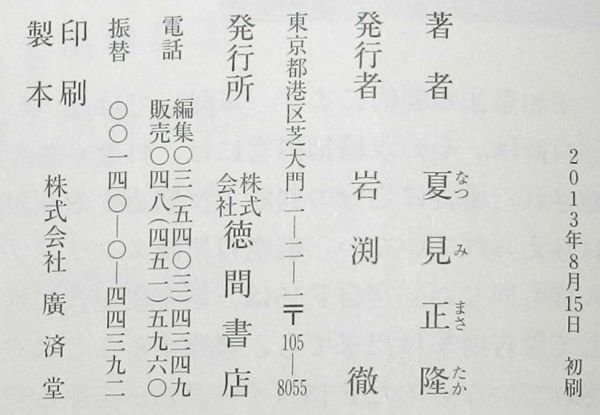 2013年8月15日 初刷
著者 夏見正隆
なつ み まさ たか
発行者 岩渕徹
東京都港区芝大門二―二―一 〒105―8055
発行所 株式会社徳間書店
電話 編集〇三(五四〇三)四三四九
販売〇四八(四五一)五九六〇
振替 〇〇一四〇―〇―四四三九二
印刷
製本 株式会社廣済堂